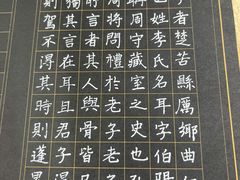 子者楚苦縣厲鄉曲仁
也姓李氏名耳字伯
聃周守藏室之史也
周將問禮於老子老子
所言者其人與骨皆已
獨其言在耳且君子得
則駕不得其時則蓬